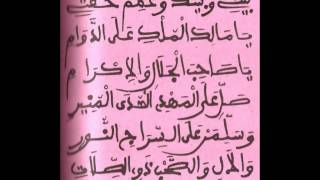 يا مالك الملك على الدوام
يا صاحب الجلال والإكرام
صل على الهدى المنير
وسلمن على السراج النور
والآل والصحب ذوي